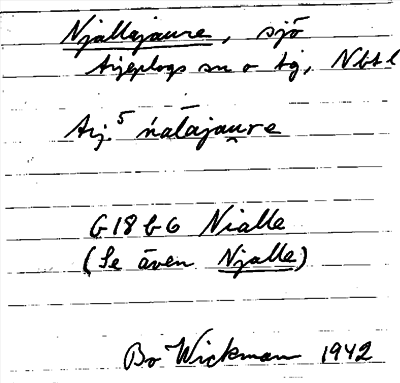 Njallajaure, sjö
Arjeplogs sn o tg, Nbtl
Arj. 5 ńalājau̯re
G18 b G Nialle
(Se även Njalle)
Bo Wickman 1942